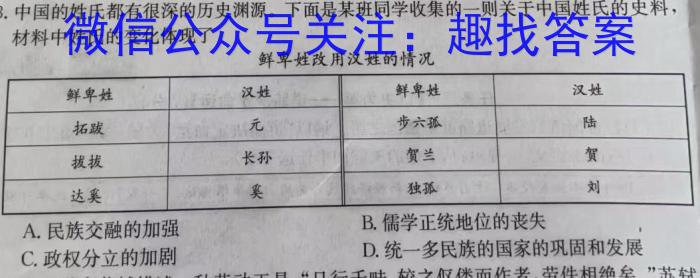 3.中国的姓氏都有很深的历史渊源,下面是某班同学收集的一则关于中国姓氏的史料,
微信公众号关注：趣找答案
材料中姓氏的变化体现了
鲜卑姓改用汉姓的情况
鲜卑姓 汉姓 鲜卑姓 汉姓
拓跋 元 步六孤 陆
拔拔 长孙 贺兰 贺
达奚 奚 独孤 刘
A.民族交融的加强 B.儒学正统地位的丧失
C.政权分立的加剧 D.统一多民族的国家的巩固和发展